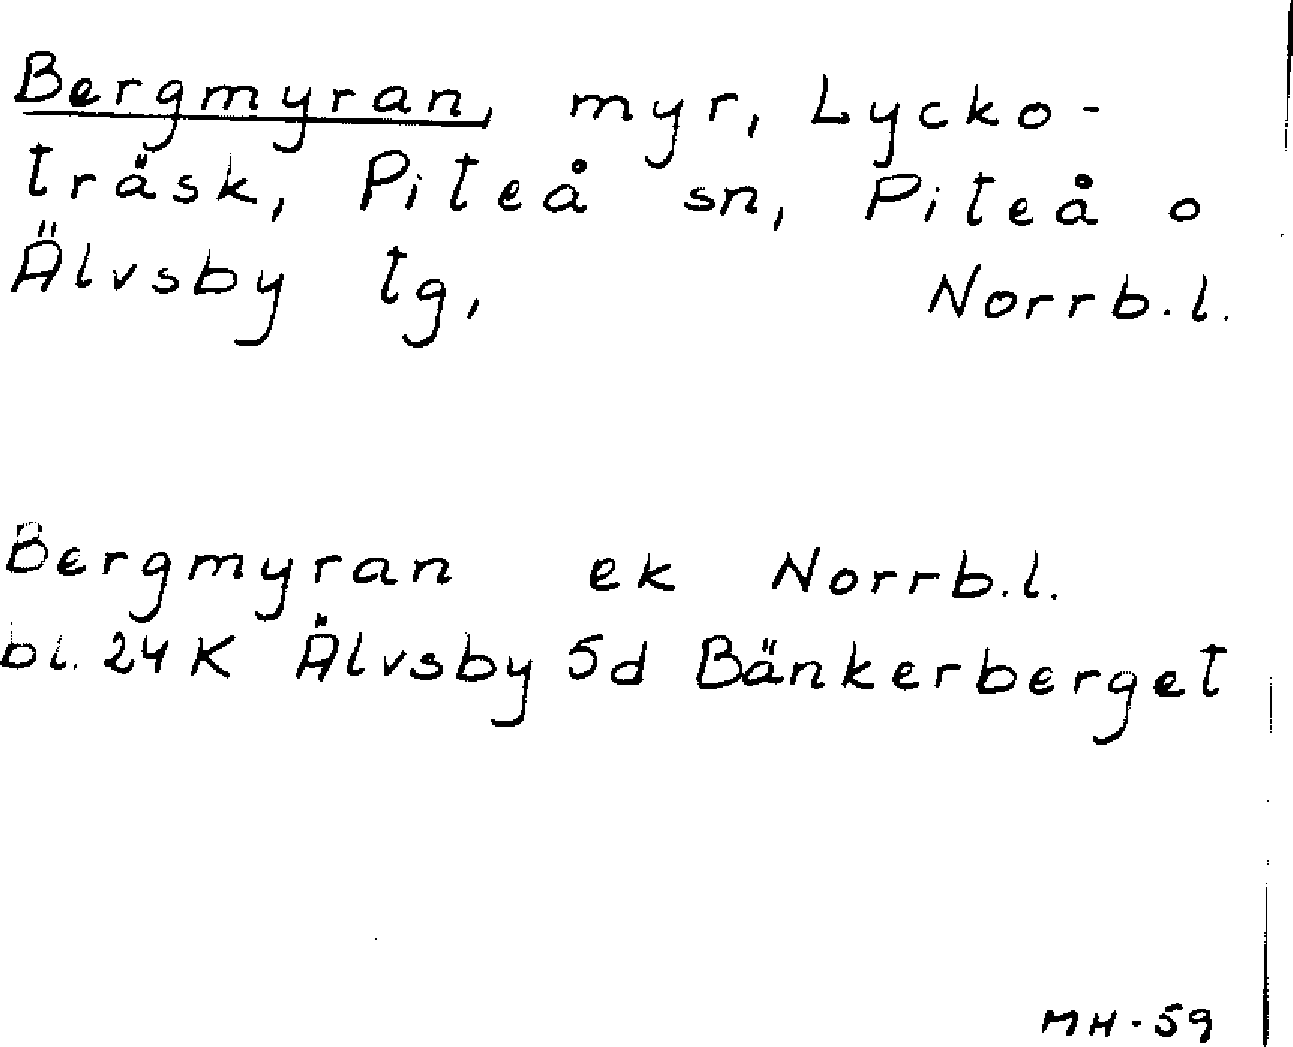 Bergmyran, myr, Lycko-
träsk, Piteå sn, Piteå o
Älvsby tg, Norrb.l.
Bergmyran ek Norrb.l.
bl. 24 K Älvsby 5d Bänkerberget
MH-59